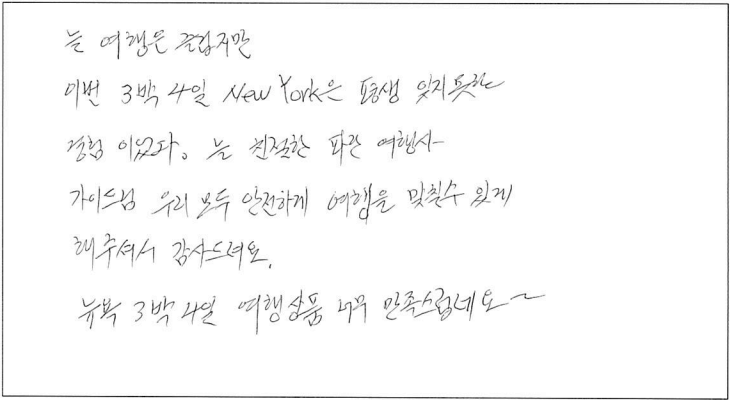 늘 여행은 즐겁지만
이번 3박 4일 New York은 평생 잊지못할
경험 이었다. 늘 친절한 파란 여행사
가이드님 우리 모두 안전하게 여행을 맞칠수 있게
해주셔서 감사드려요.
뉴욕 3박 4일 여행상품 너무 만족스럽네요~